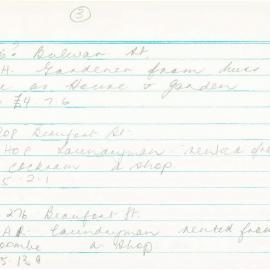 ③
Bulwer St.
A. Gardener from Miss
as House & Garden
£4 7.6
208 Beaufort St.
HOP Laundryman rented from
Cockram a shop
5.2.1
276 Beaufort St.
Laundryman rented from
a Shop